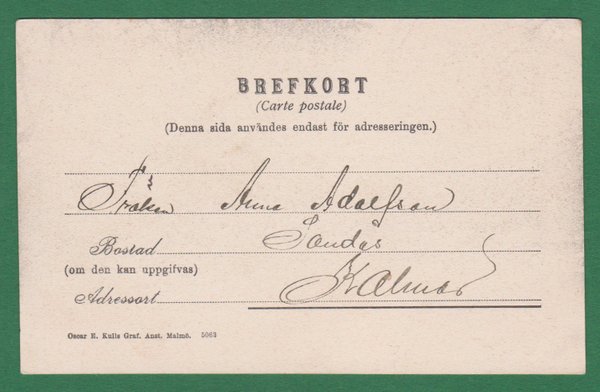 BREFKORT
(Carte postale)
(Denna sida användes endast för adresseringen.)
Fröken Anna Adolfson
Bostad
(om den kan uppgifvas)
Adressort Kalmar
Oscar E. Kulls Graf. Anst. Malmö. 5063